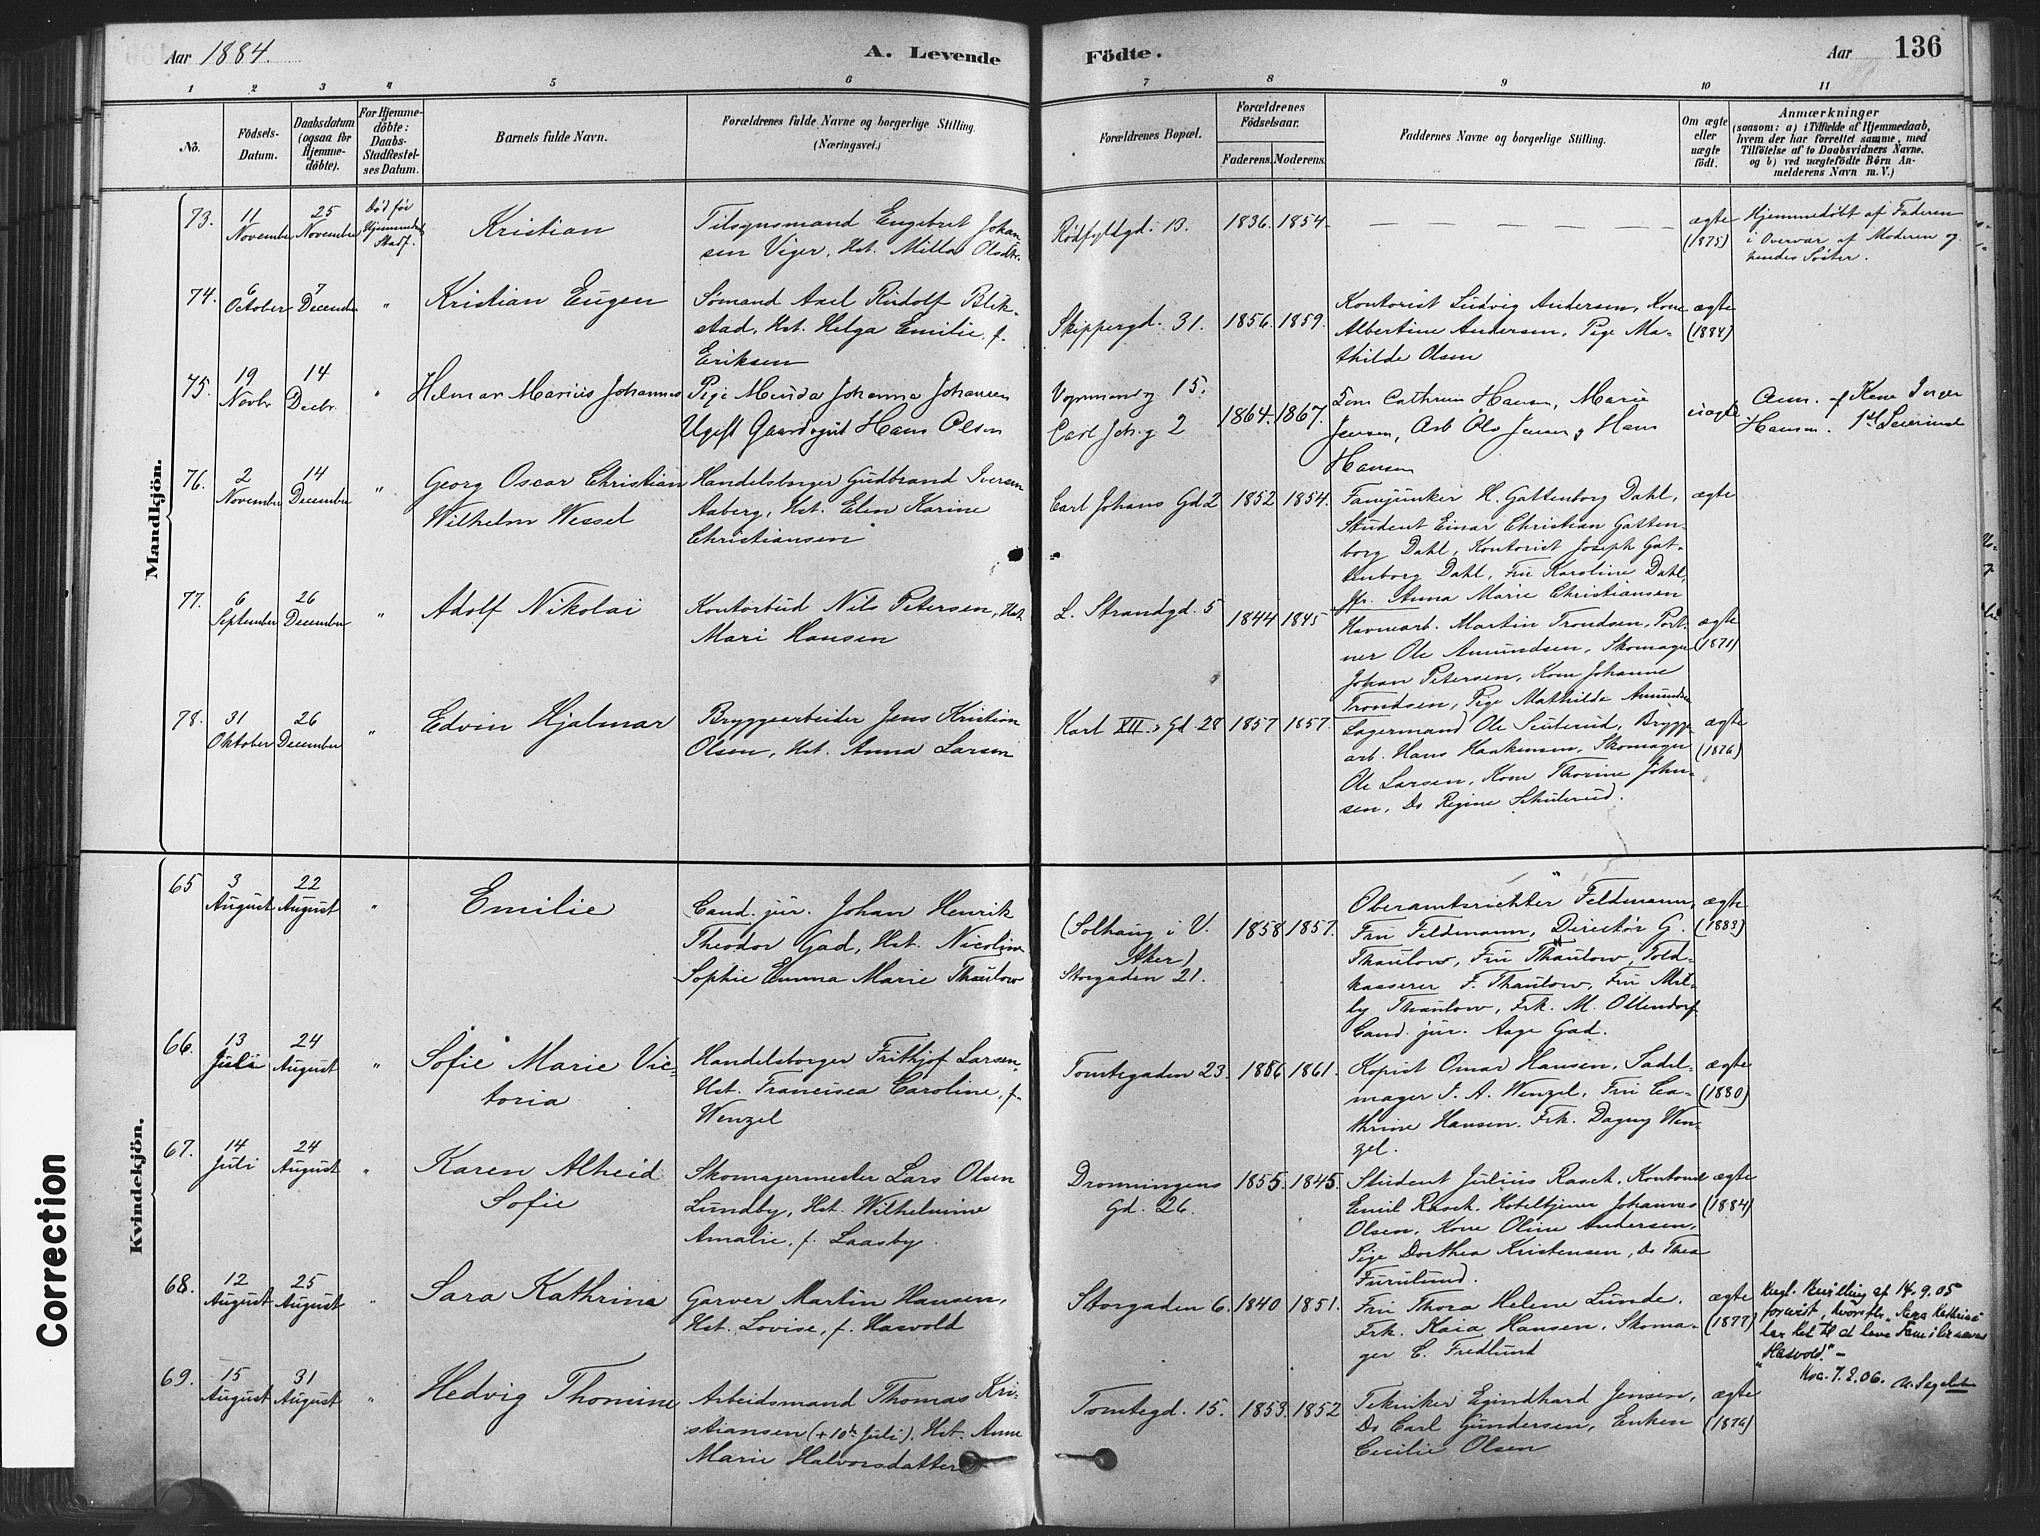 Aar 1884.
A. Levende Födte.
Aar 136
1 2 3 4 5 6 7 8 9 10 11
No.
Födsels-Datum.
Daabsdatum (ogsaa for Hjemme-döbte).
For Hjemme-döbte: Daabs-Stadfæstel-ses Datum.
Barnets fulde Navn.
Forældrenes fulde Navne og borgerlige Stilling.
(Næringsvei.)
Forældrenes Bopæl.
Forældrenes Födselsaar.
Faderens. Moderens.
Faddernes Navne og borgerlige Stilling.
Om ægte eller uægte födt.
Anmærkninger
(saasom: a) i Tilfælde af Hjemmedaab,
hvem der har forrettet samme, med
Tilföielse af to Daabsvidners Navne.
og b) ved uægtefödte Börn An-
melderens Navn m. V.)
Mandkjön.
73. 11 November 25 November Död før Hjemmedaab Stadf.
Kristian
Tilsynsmand Engebret Johan-
sen Viger, Hst. Milla Olsdtr.
Rødfyldgd. 13. 1836. 1854.
— — — — —
ægte (1875)
Hjemmedøbt af Faderen
i Overvær af Moderen og
hendes Søster.
74. 6 October 7 December "
Kristian Eugen
Sømand Axel Rudolf Blik-
stad, Hst. Helga Emilie, f.
Eriksen
Skippergd. 31. 1856. 1859.
Kontorist Ludvig Andersen, Kone
Albertine Andersen, Pige Ma-
thilde Olsen
ægte (1884)
75. 19 Novbr 14 Decbr. "
Helmar Marius Johannes
Pige Menda Johanna Johansen
Ugift Gaardsgut Hans Olsen
15.
Carl Joh. g 2 1864. 1867.
Cathrine Hansen, Marie
Jensen, Arb Ole Jensen, Hans
Hansen
uægte
Anm. f Kone Inger
Hansen.
76. 2 November 14 December "
Georg Oscar Christian
Wilhelm Wessel
Handelsborger Gudbrand Iversen
Aaberg, Hst. Elen Karine
Christiansen
Carl Johans Gd 2 1852 1854.
Fanejunker H. Gattenborg Dahl,
Student Einar Christian Gatten-
borg Dahl, Kontorist Joseph Gat-
tenborg Dahl, Fru Karoline Dahl,
Jfr. Anna Marie Christiansen
ægte
77. 6 September 26 December "
Adolf Nikolai
Kontorbud Nils Petersen, Hst
Mari Hansen
L. Strandgd. 5 1844 1845
Havnearb. Martin Trondsen, Port-
ner Ole Amundsen, Skomager
Johan Petersen, Kone Johanne
Trondsen, Pige Mathilde Amundsen
ægte (1871)
78. 31 Oktober 26 December "
Edvin Hjalmar
Bryggearbeider Jens Kristian
Olsen, Hst. Anna Larsen
Karl XII.s Gd 28 1857 1857.
Lagermand Ole Skuterud, Brygge-
arb. Hans Haakensen, Skomager
Ole Larsen, Kone Thorine John-
sen, Do Regine Skuterud.
ægte (1876)
Kvindekjön.
65 3 August 22 August "
Emilie
Cand. jur. Johan Henrik
Theodor Gad, Hst. Nicoline
Sophie Emma Marie Thaulow
(Solhaug i V.
Aker)
Storgaden 21. 1858 1857.
Oberamtsrichter Feldmann,
Fru Feldmann, Direktør G.
Thaulow, Fru Thaulow, Told-
kasserer F. Thaulow, Fru Mil-
ly Thaulow, Frk. M. Ollendorf
Cand. jur. Aage Gad.
ægte (1883)
66. 13 Juli 24 August "
Sofie Marie Vic-
toria
Handelsborger Frithjof Larsen,
Hst. Francisca Caroline, f.
Wenzel
Tomtegaden 23. 1886 1861.
Kopist Omar Hansen, Sadel-
mager F. A. Wenzel, Fru Ca-
thrine Hansen, Frk. Dagny Wen-
zel.
ægte (1880)
67. 14 Juli 24 August "
Karen Alheid
Sofie
Skomagermester Lars Olsen
Lundby, Hst. Wilhelmine
Amalie, f. Laasby.
Dronningens
Gd. 26. 1855. 1845.
Student Julius Rasch, Kontorist
Emil Rasch, Hoteltjener Johannes
Olsen, Kone Oline Andersen,
Pige Dorthea Kristensen, Do Thea
Furulund.
ægte (1884)
68. 12 August 25 August "
Sara Kathrine
Garver Martin Hansen,
Hst. Lovise, f. Hasvold
Storgaden 6. 1840 1851.
Fru Thora Helene Lunde.
Frk. Kaia Hansen, Skoma-
ger C. Fredlund
ægte (1877)
Kngl. Bevilling af 14.9.05
forevist, hvorefter Sara Kathrine
har Ret til at bære Familienavnet
"Hasvold." –
Kra. 7.2.06.
69. 15 August 31 August "
Hedvig Thomine
Arbeidsmand Thomas Kri-
stiansen (+ 10de Juli). Hst. Anne
Marie Halvorsdatter
Tomtegd. 15. 1853. 1852
Tekniker Egindhard Jensen,
Do Carl Gundersen, Enken
Cecilie Olsen
ægte (1876)
Correction